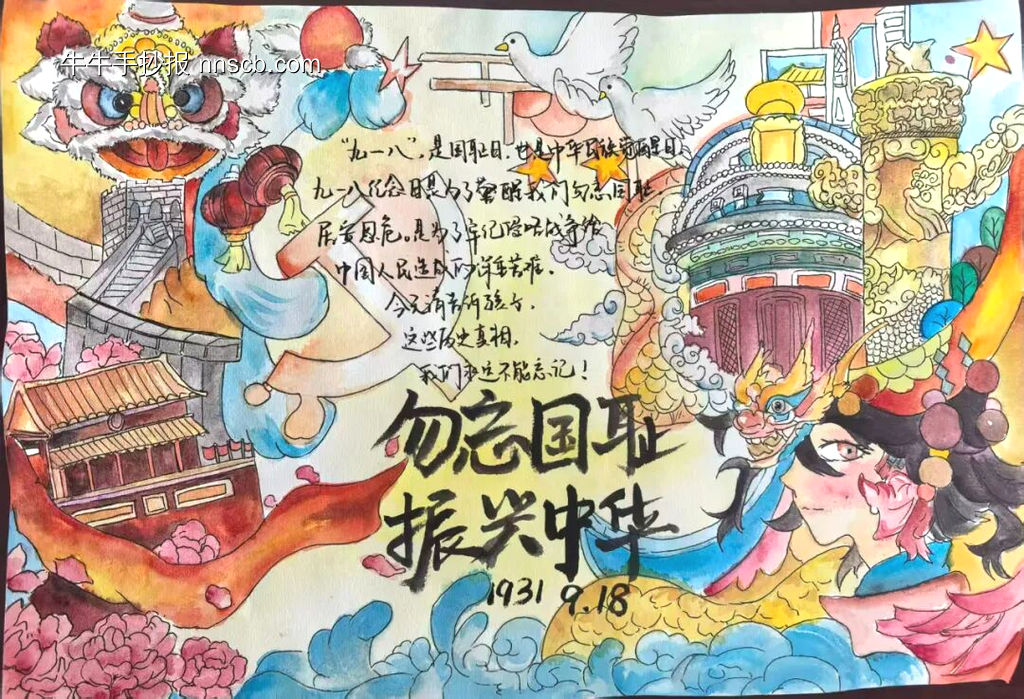 牛牛手抄报 nnscb.com
“九一八”，是国耻日，也是中华民族觉醒日、
九一八纪念日是为了警醒我们勿忘国耻、
居安思危。是为了牢记侵略战争给
中国人民造成的深重苦难。
今天请告诉孩子，
这些历史真相，
我们永远不能忘记！
勿忘国耻
振兴中华
1931 9.18